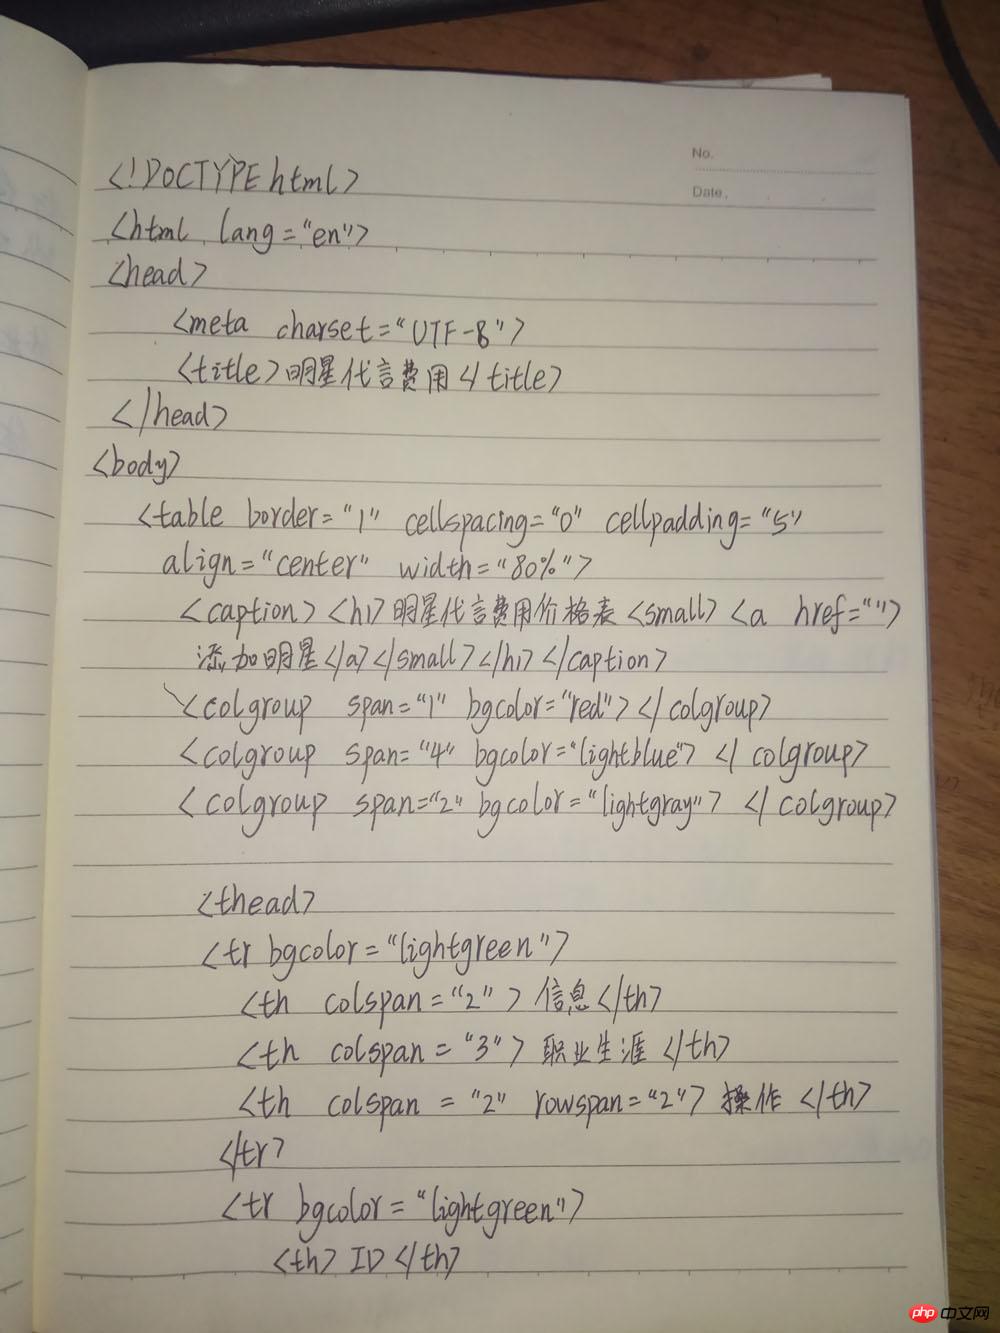 No.
Date.
<!DOCTYPE html>
<html lang="en">
<head>
<meta charset="UTF-8">
<title>明星代言费用</title>
</head>
<body>
<table border="1" cellspacing="0" cellpadding="5"
align="center" width="80%">
<caption><h1>明星代言费用价格表<small><a href="">
添加明星</a></small></h1></caption>
<colgroup span="1" bgcolor="red"></colgroup>
<colgroup span="4" bgcolor="lightblue"></colgroup>
<colgroup span="2" bgcolor="lightgray"></colgroup>
<thead>
<tr bgcolor="lightgreen">
<th colspan="2">信息</th>
<th colspan="3">职业生涯</th>
<th colspan="2" rowspan="2">操作</th>
</tr>
<tr bgcolor="lightgreen">
<th>ID</th>
php中文网